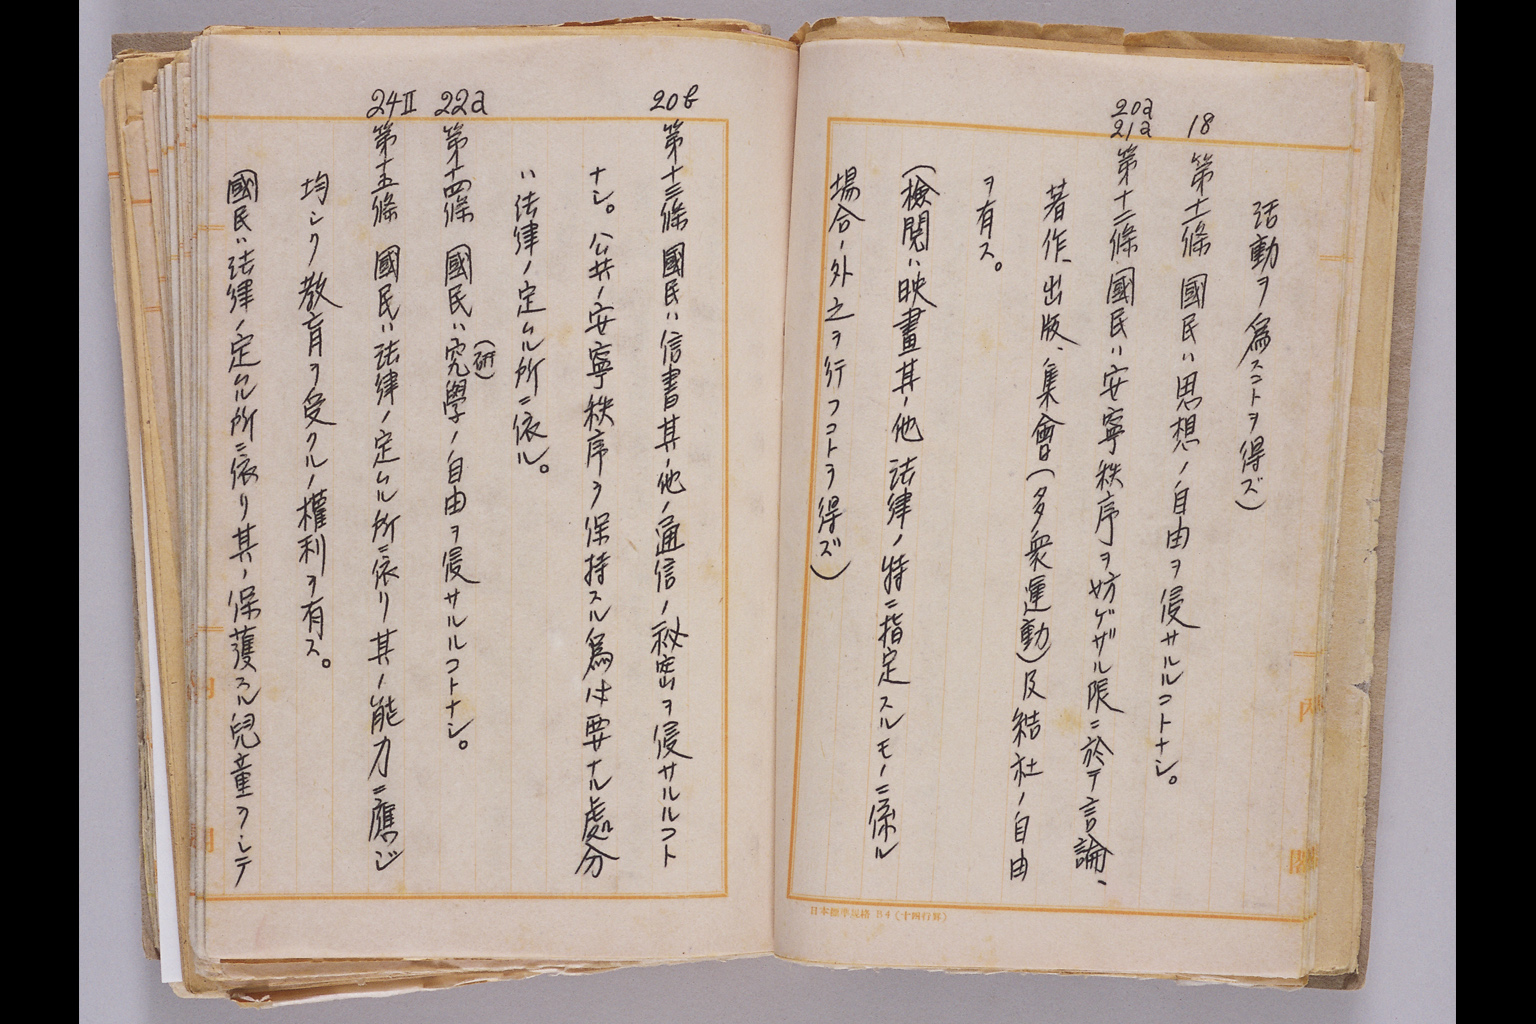 活動ヲ爲スコトヲ得ズ)
18
第十一條 國民ハ思想ノ自由ヲ侵サルルコトナシ。
20a
21a
第十二條 國民ハ安寧秩序ヲ妨ゲザル限ニ於テ言論、
著作、出版、集會(多衆運動)及結社ノ自由
ヲ有ス。
(檢閲ハ映畫其ノ他法律ノ特ニ指定スルモノニ係ル
場合ノ外之ヲ行フコトヲ得ズ)
日本標準規格 B4 (十四行罫)
内
閣
20b
第十三條 國民ハ信書其ノ他ノ通信ノ祕密ヲ侵サルルコト
ナシ。公共ノ安寧秩序ヲ保持スル爲必要ナル處分
ハ法律ノ定ムル所ニ依ル。
22a
第十四條 國民ハ究學ノ自由ヲ侵サルルコトナシ。
(研)
24II
第十五條 國民ハ法律ノ定ムル所ニ依リ其ノ能力ニ應ジ
均シク教育ヲ受クルノ權利ヲ有ス。
國民ハ法律ノ定ムル所ニ依リ其ノ保護スル兒童ヲシテ